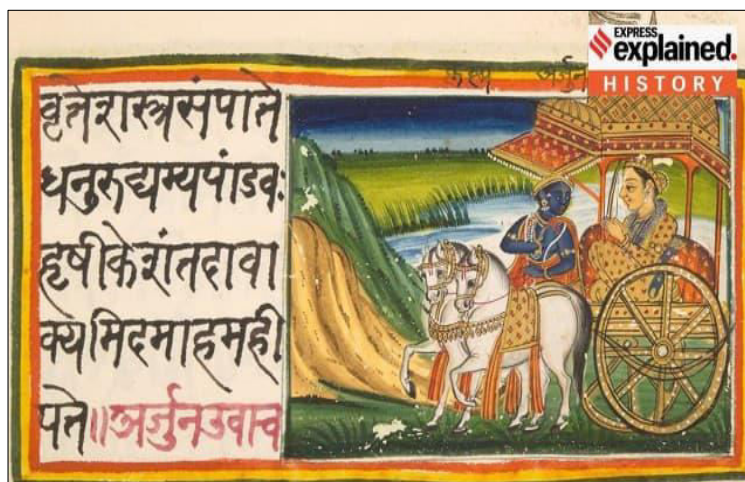 EXPRESS
explained.
HISTORY
कृष्ण अर्जुन
वृत्तेशस्त्रसंपाते
धनुरुद्यम्यपांडवः
हृषीकेशंतदावा
क्यमिदमाहमही
पते॥अर्जुनउवाच